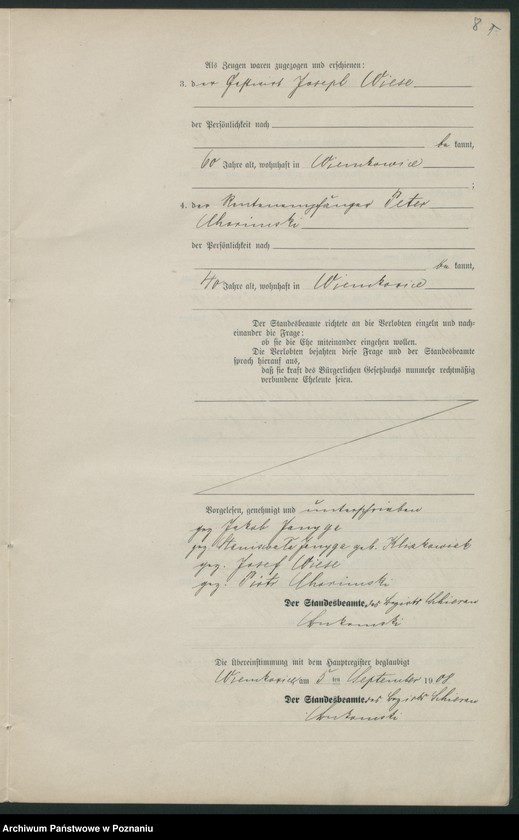 8
Als Zeugen waren zugezogen und erschienen:
3. der Gastwirt Joseph Wiese
der Persönlichkeit nach
be kannt,
60 Jahre alt, wohnhaft in
;
4. der Rentenempfänger Peter
der Persönlichkeit nach
be kannt,
40 Jahre alt, wohnhaft in
Der Standesbeamte richtete an die Verlobten einzeln und nach-
einander die Frage:
ob sie die Ehe miteinander eingehen wollen.
Die Verlobten bejahten diese Frage und der Standesbeamte
sprach hierauf aus,
daß sie kraft des Bürgerlichen Gesetzbuchs nunmehr rechtmäßig
verbundene Eheleute seien.
Vorgelesen, genehmigt und unterschrieben
gez. Jakob
gez. geb.
gez. Josef Wiese
gez. Piotr
Der Standesbeamte, des Bezirks
Die Übereinstimmung mit dem Hauptregister beglaubigt
am 5 ten September 19
Der Standesbeamte, des Bezirks
Archiwum Państwowe w Poznaniu